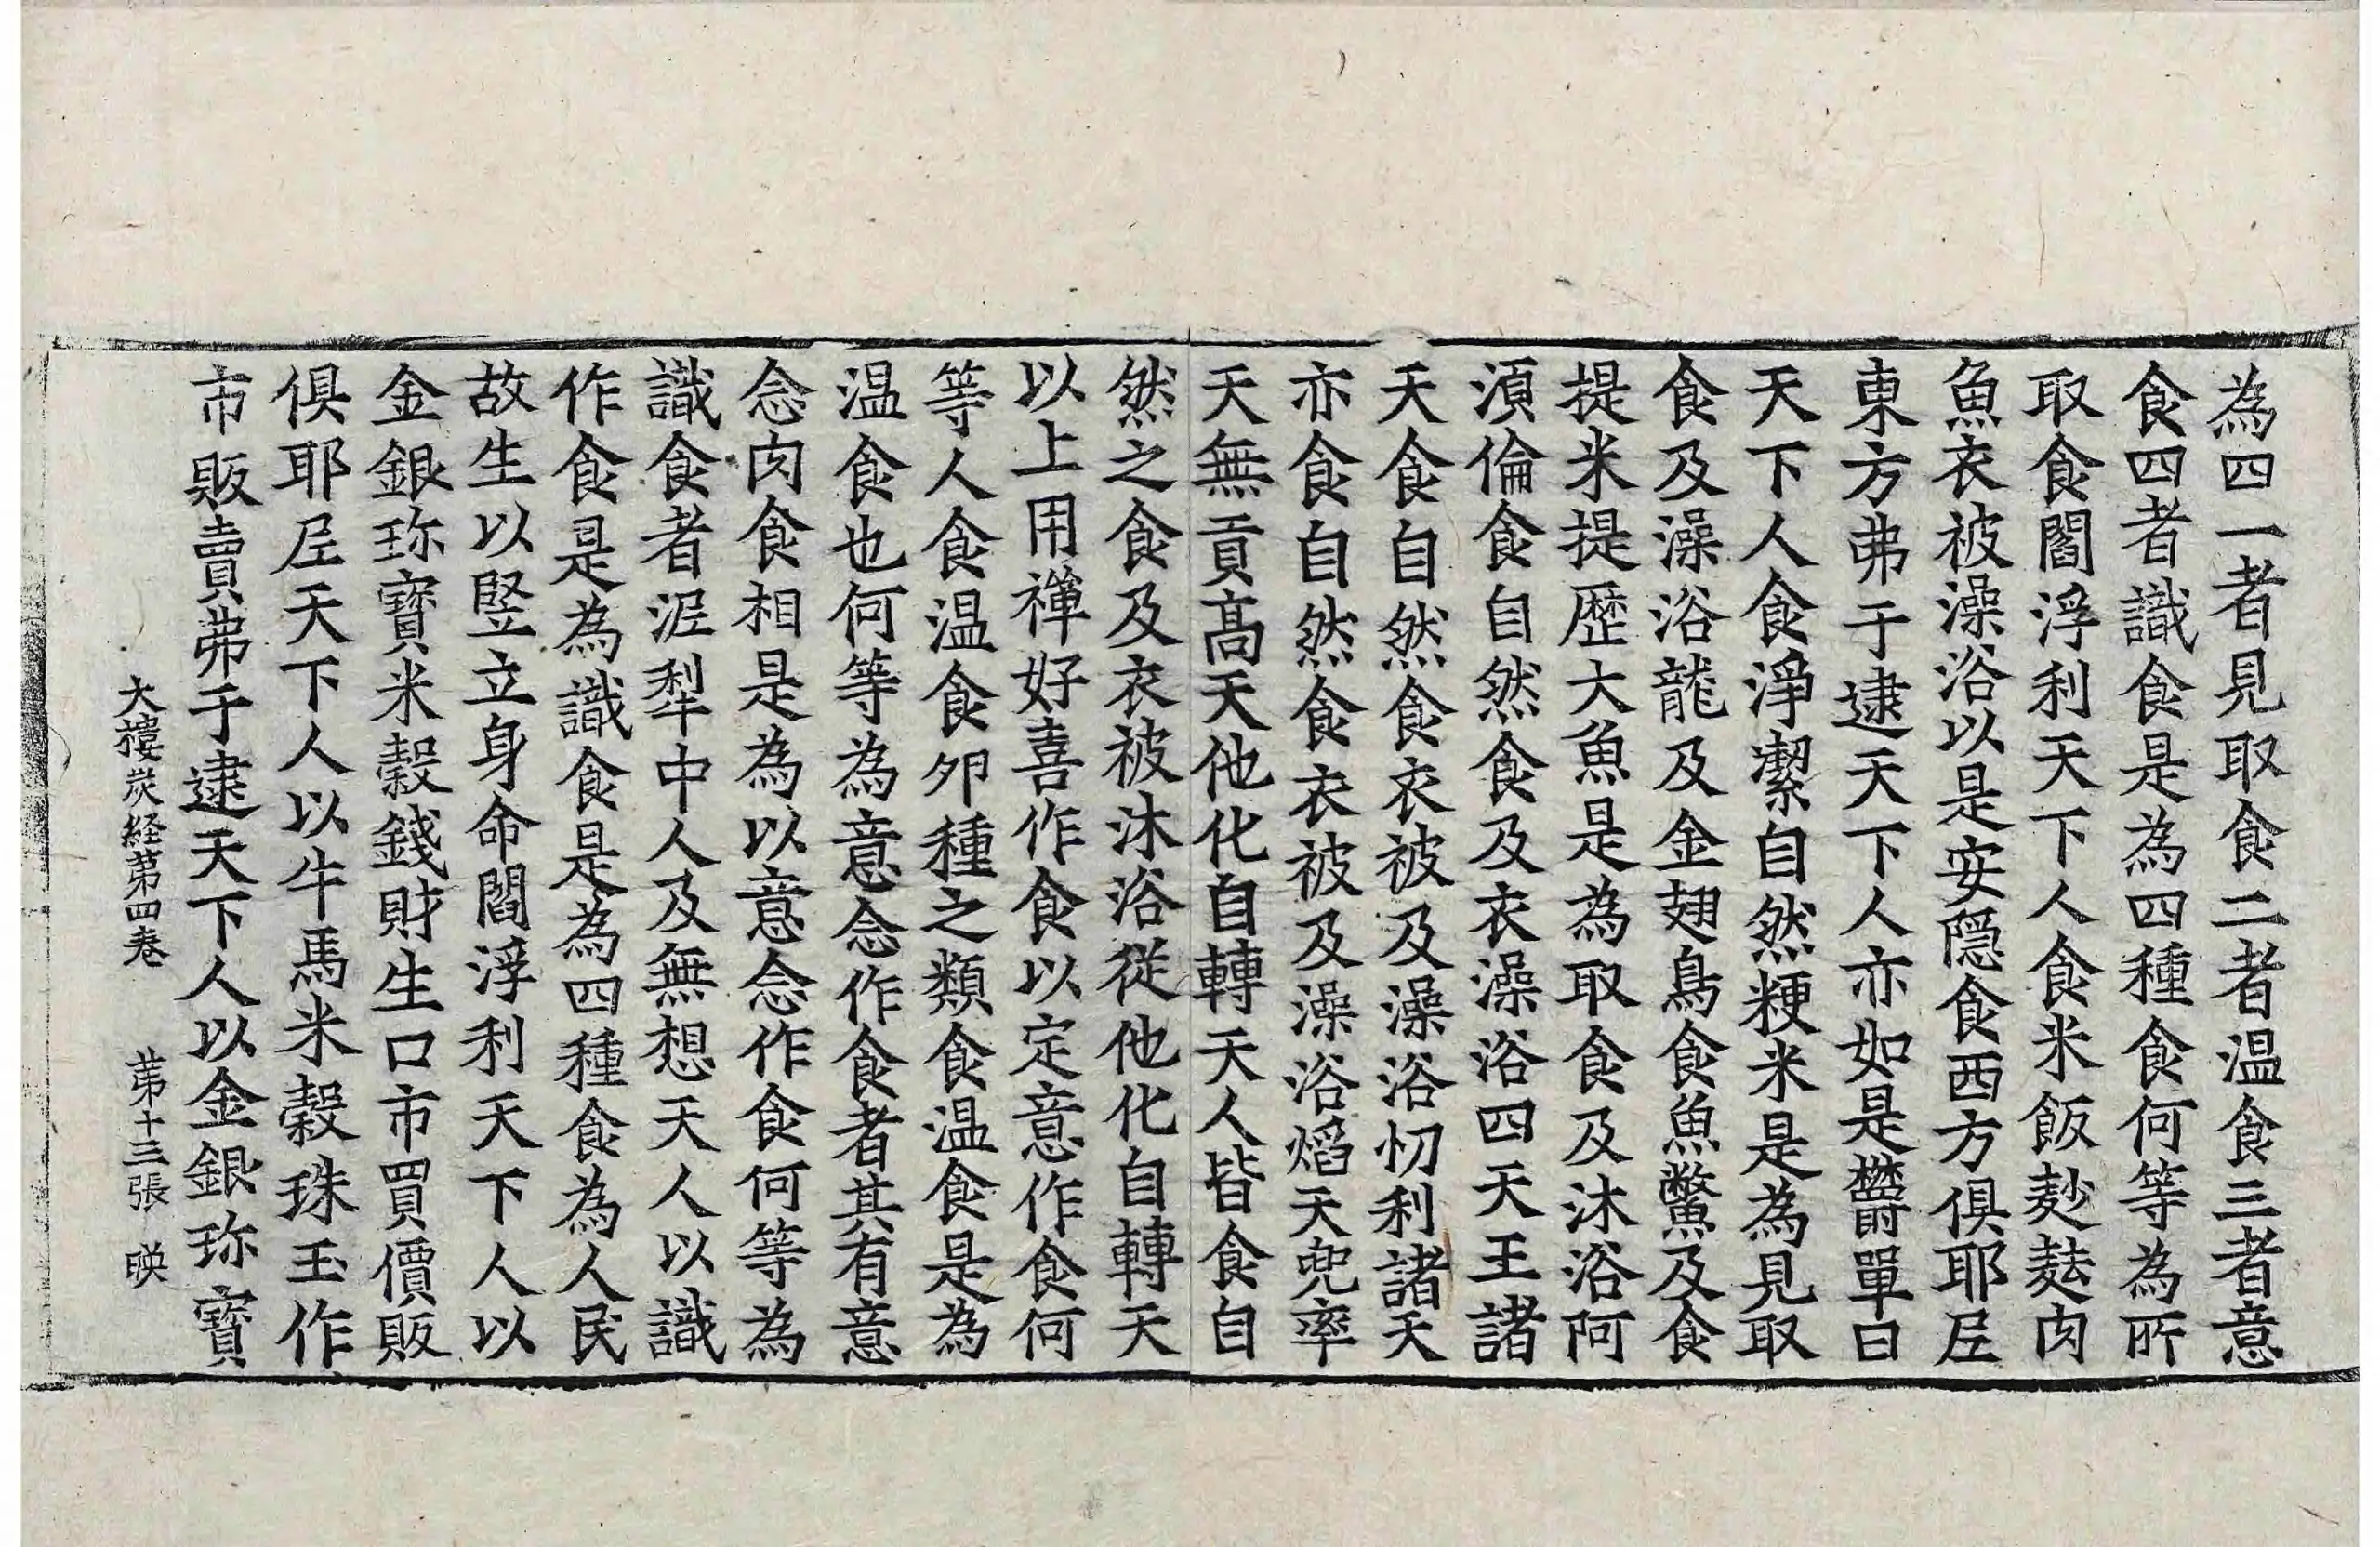 為四一者見取食二者温食三者意
食四者識食是為四種食何等為所
取食閻浮利天下人食米飯麨麮肉
魚衣被澡浴以是安隠食西方俱耶𡰱
東方弗于逮天下人亦如是欝單曰
天下人食淨潔自然粳米是為見取
食及澡浴龍及金翅鳥食魚鼈及食
提米提歴大魚是為取食及沐浴阿
湏倫食自然食及衣澡浴四天王諸
天食自然食衣被及澡浴忉利諸天
亦食自然食衣被及澡浴熖天兜率
天無貢髙天他化自轉天人皆食自
然之食及衣被沐浴從他化自轉天
以上用禪好喜作食以定意作食何
等人食温食夘種之類食温食是為
温食也何等為意念作食者其有意
念肉食相是為以意念作食何等為
識食者泥犁中人及無想天人以識
作食是為識食是為四種食為人民
故生以竪立身命閻浮利天下人以
金銀珎寳米糓錢財生口市買價販
俱耶𡰱天下人以牛馬米糓珠玉作
市販賣弗于逮天下人以金銀珎寳
大樓炭経苐四卷 苐十三張 暎